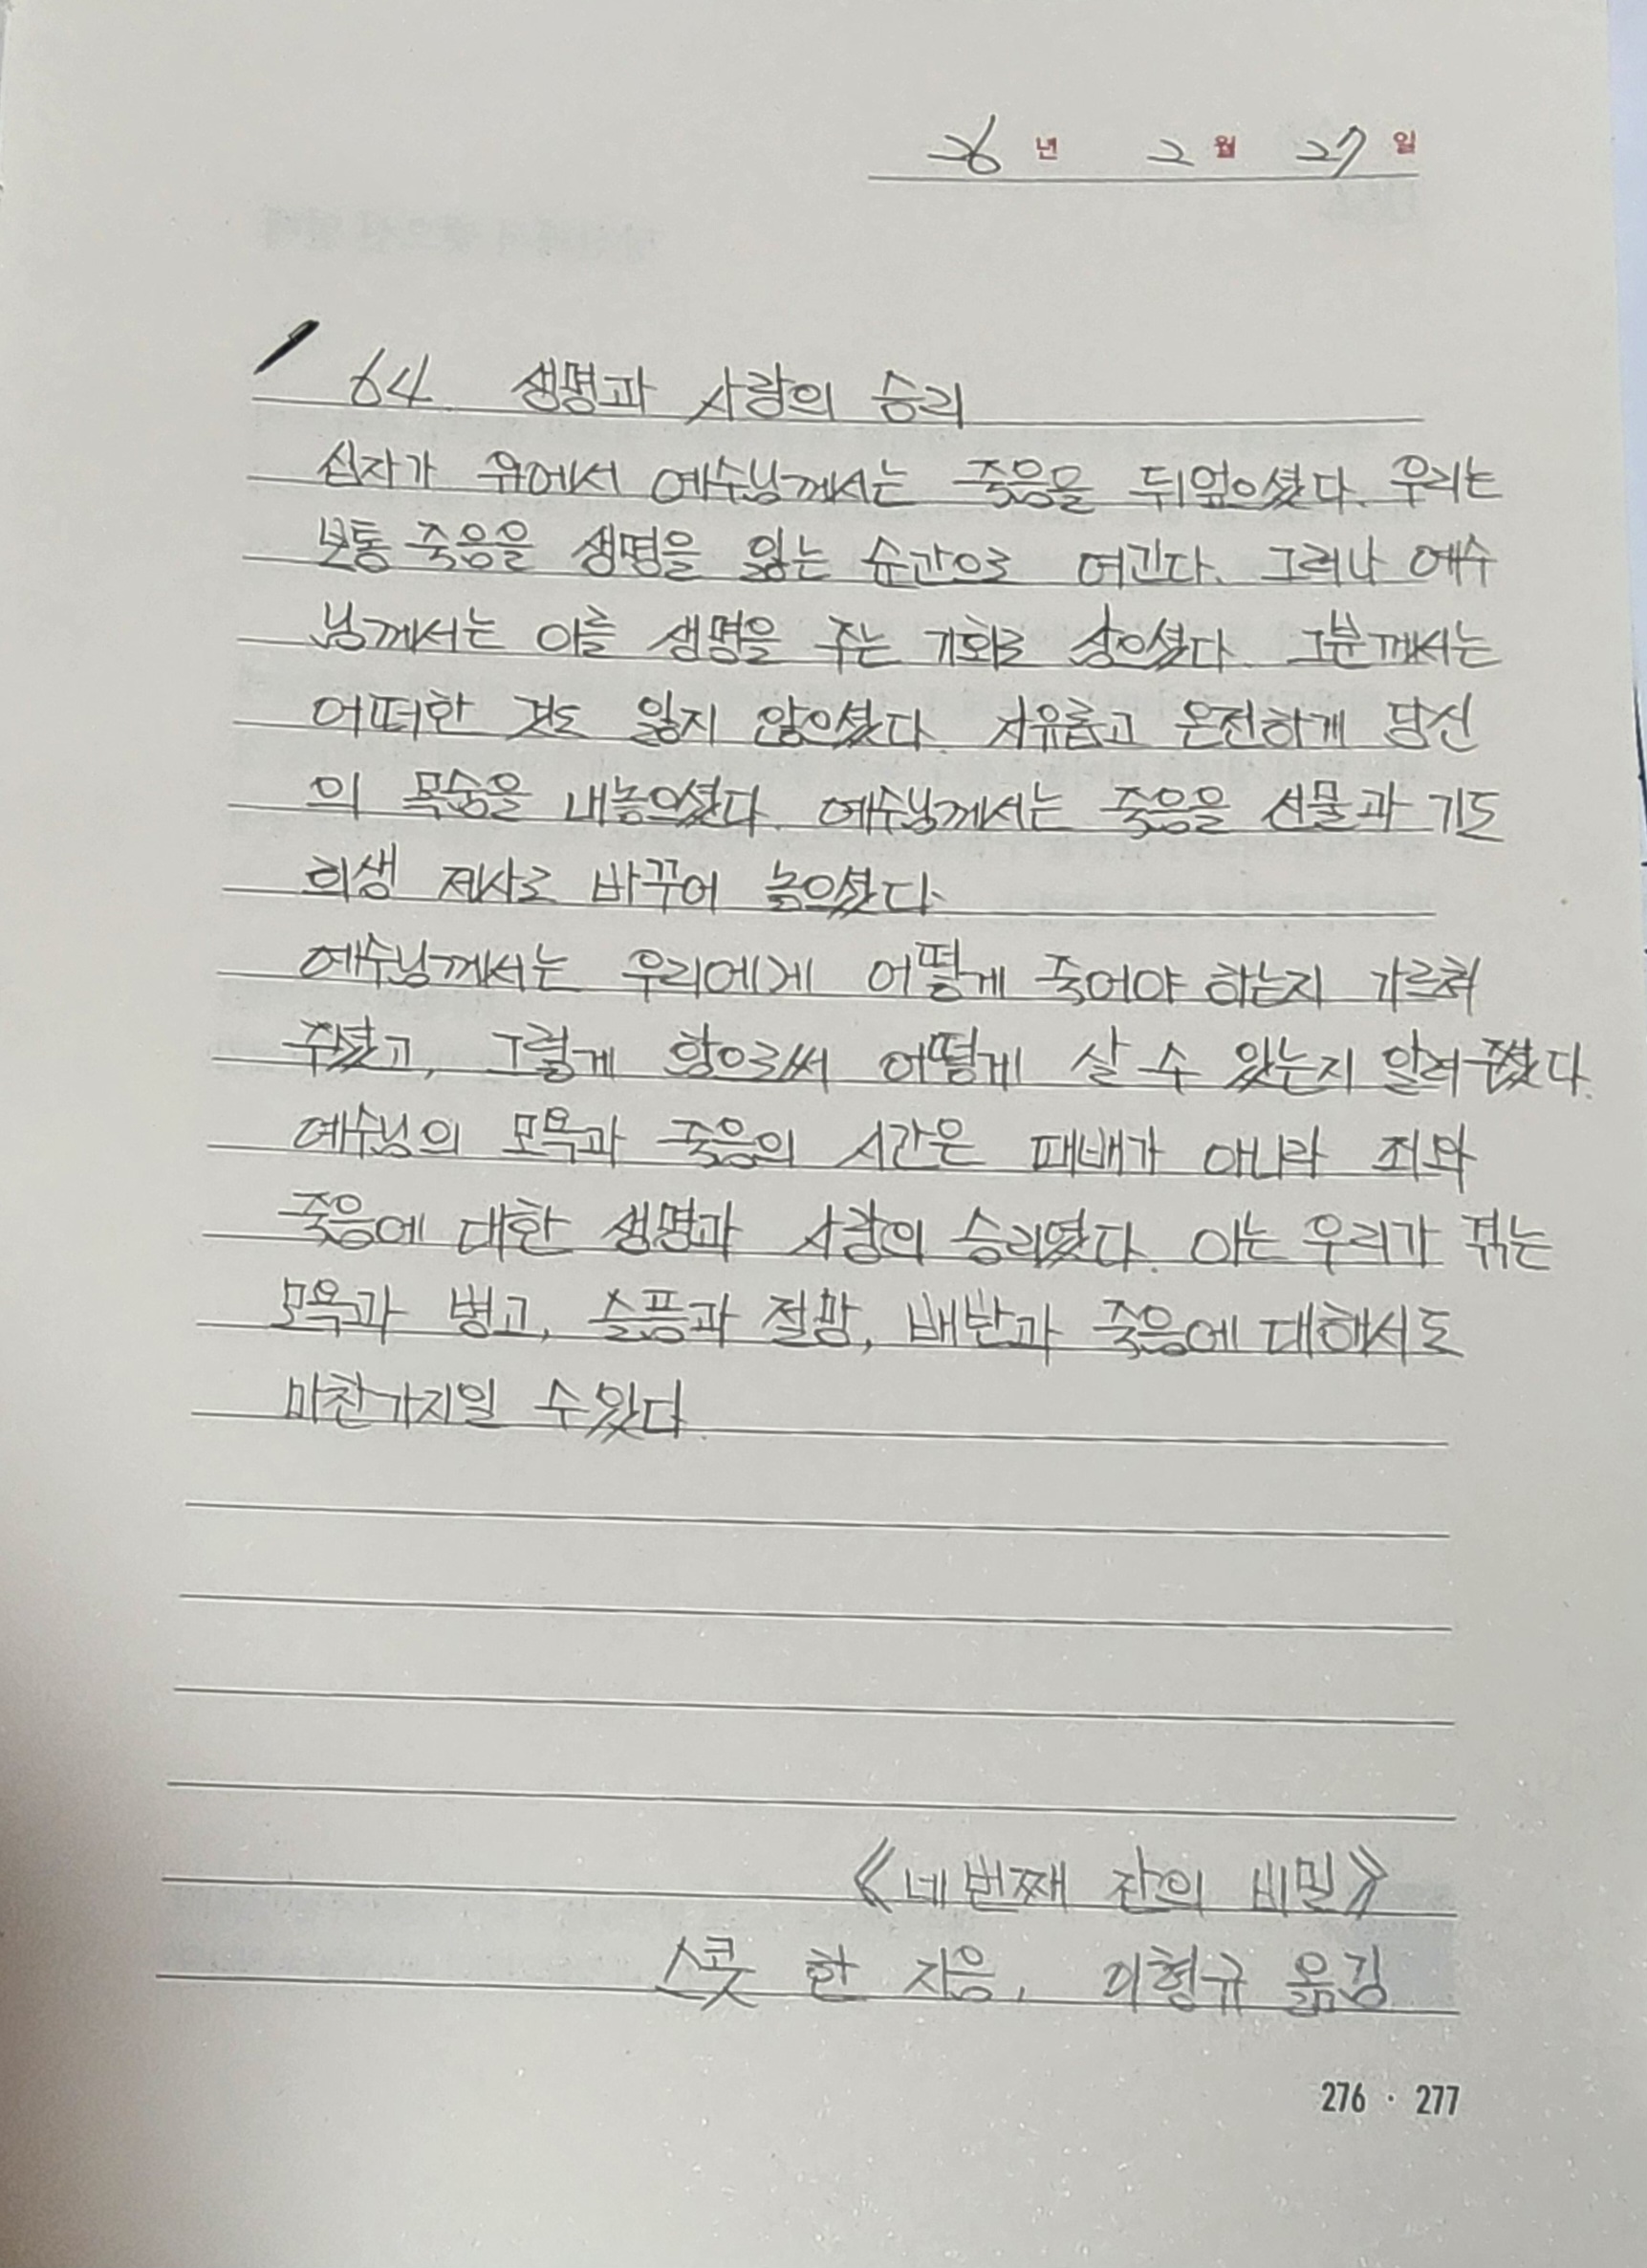 26년 2월 27일
64. 생명과 사랑의 승리
십자가 위에서 예수님께서는 죽음을 뒤엎으셨다. 우리는
보통 죽음을 생명을 잃는 순간으로 여긴다. 그러나 예수
님께서는 이를 생명을 주는 기회로 삼으셨다. 그분께서는
어떠한 것도 잃지 않으셨다. 자유롭고 온전하게 당신
의 목숨을 내놓으셨다. 예수님께서는 죽음을 선물과 기도
희생 제사로 바꾸어 놓으셨다.
예수님께서는 우리에게 어떻게 죽어야 하는지 가르쳐
주셨고, 그렇게 함으로써 어떻게 살 수 있는지 알려 주셨다.
예수님의 모욕과 죽음의 시간은 패배가 아니라 죄와
죽음에 대한 생명과 사랑의 승리였다. 이는 우리가 겪는
모욕과 병고, 슬픔과 절망, 배반과 죽음에 대해서도
마찬가지일 수 있다.
《네 번째 잔의 비밀》
스콧 한 지음, 이형규 옮김
276 · 277